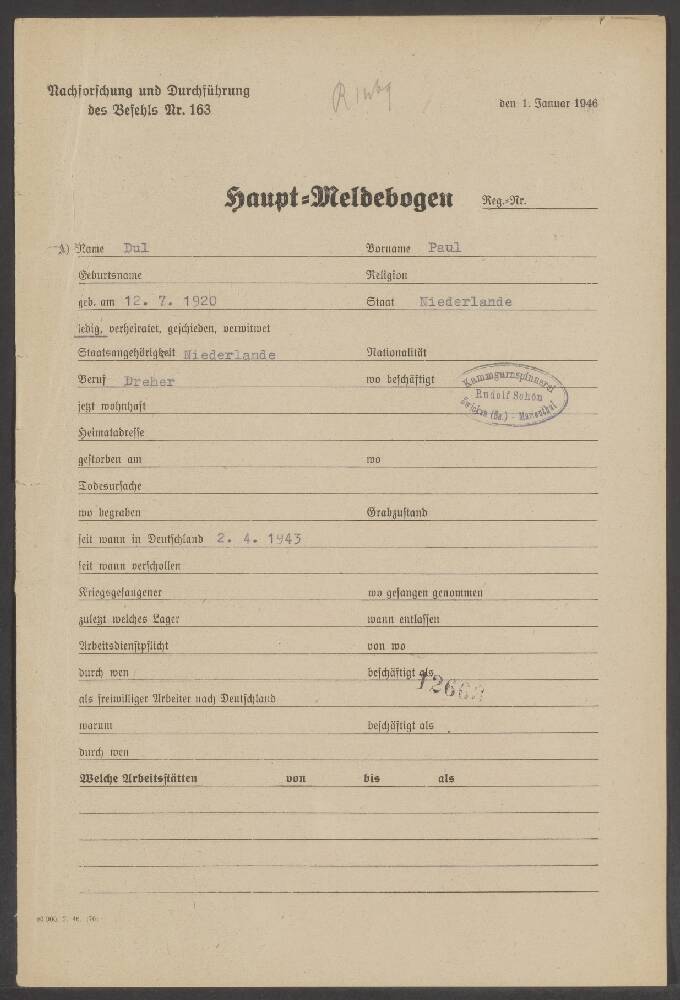 Nachforschung und Durchführung
des Befehls Nr. 163
den 1. Januar 1946
Haupt-Meldebogen Reg.-Nr.
A) Name Dul Vorname Paul
Geburtsname Religion
geb. am 12. 7. 1920 Staat Niederlande
ledig, verheiratet, geschieden, verwitwet
Staatsangehörigkeit Niederlande Nationalität
Beruf Dreher wo beschäftigt
Kammgarnspinnerei
Rudolf Schön
Zwickau (Sa.) - Marienthal
jetzt wohnhaft
Heimatadresse
gestorben am wo
Todesursache
wo begraben Grabzustand
seit wann in Deutschland 2. 4. 1943
seit wann verschollen
Kriegsgefangener wo gefangen genommen
zuletzt welches Lager wann entlassen
Arbeitsdienstpflicht von wo
durch wen beschäftigt als
als freiwilliger Arbeiter nach Deutschland
warum beschäftigt als
durch wen
Welche Arbeitsstätten von bis als